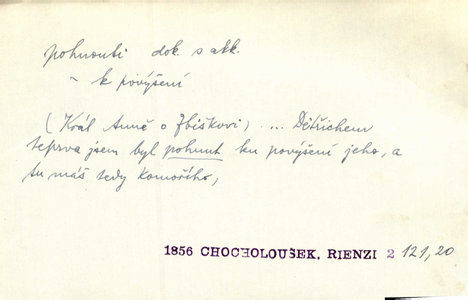 pohnouti dok. s akk.
~ k povýšení
(Král Anně o Zbiškovi) ... Dětřichem
teprva jsem byl pohnut ku povýšení jeho, a
tu máš tedy komořího,
1856 CHOCHOLOUŠEK, RIENZI 2 121,20